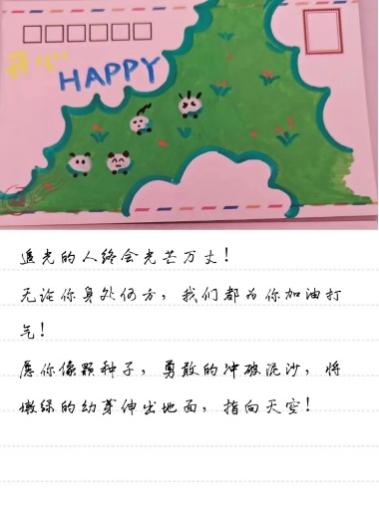 开心
HAPPY
追光的人终会光芒万丈!
无论你身处何方,我们都为你加油打
气!
愿你像颗种子,勇敢的冲破泥沙,将
嫩绿的幼芽伸出地面,指向天空!